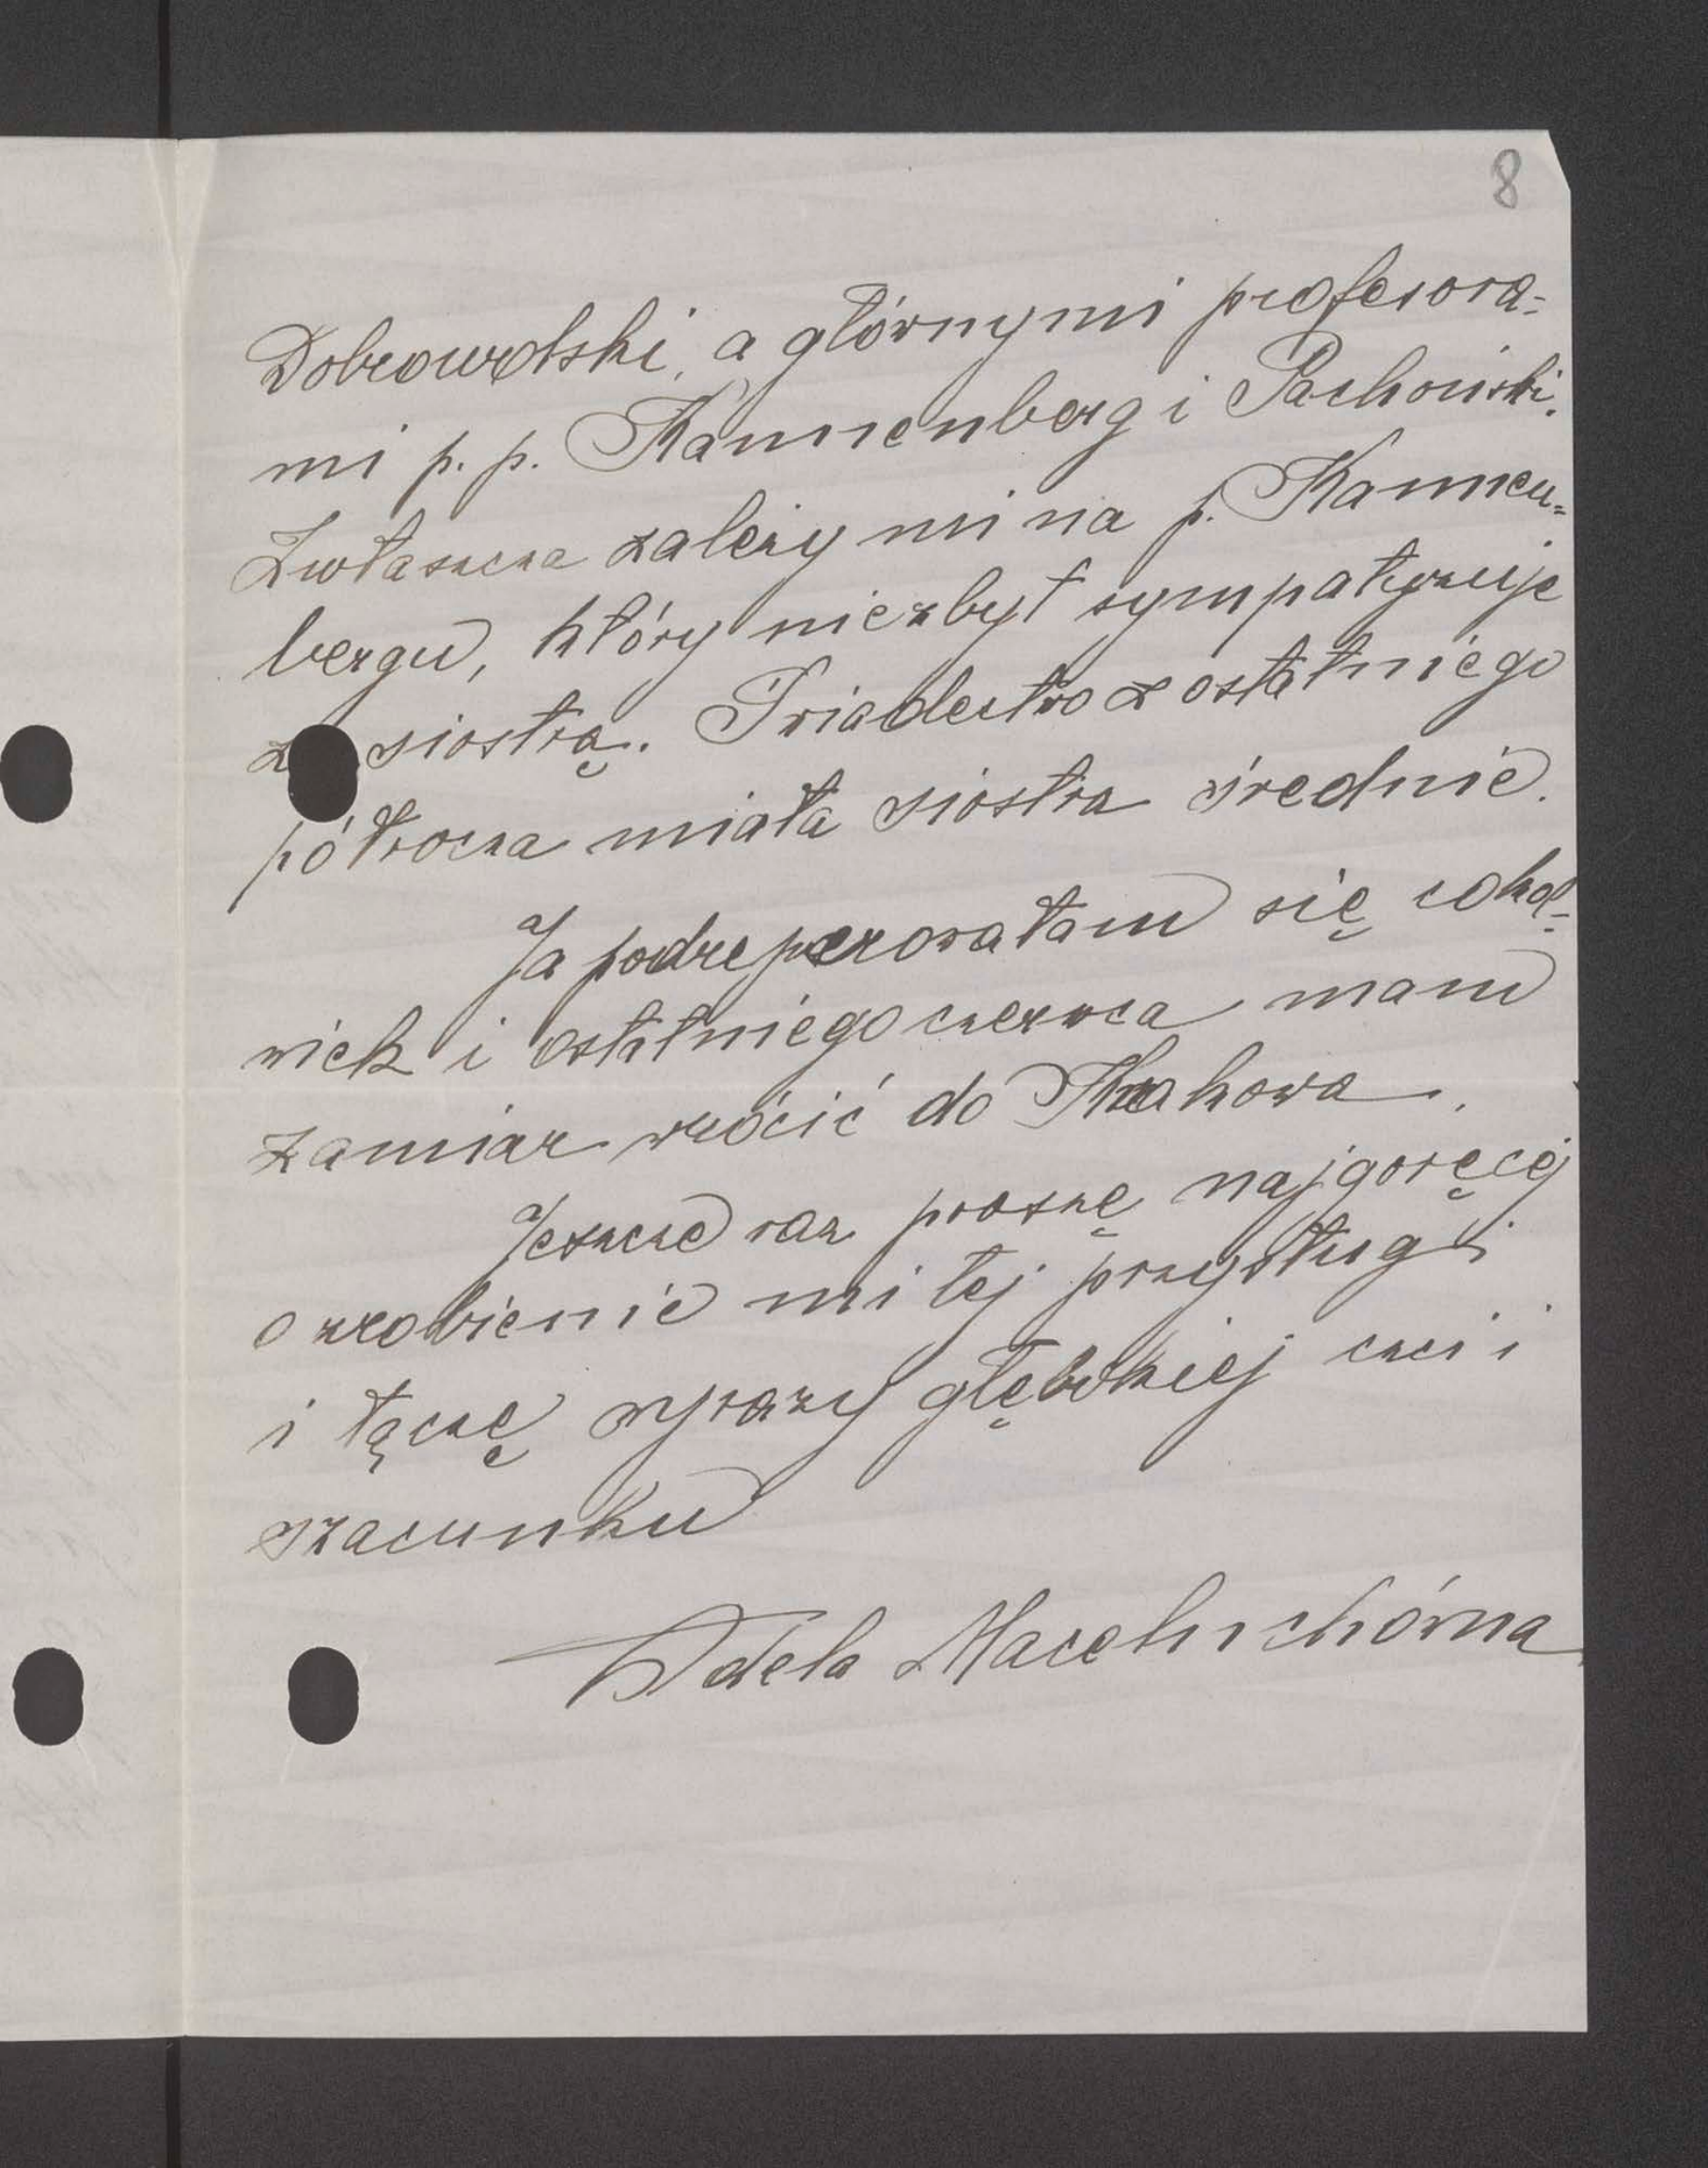 8
Dobrowolski, a głównymi profesora-
mi p. p. Kannenberg i Pachoński.
Zwłaszcza zależy mi na p. Kannen-
bergu, który niezbyt sympatyzuje
z siostrą. Świadectwo z ostatniego
półrocza miała siostra średnie.
Ja podreperowałam się cokol-
wiek i ostatniego czerwca mam
zamiar wrócić do Krakowa.
Jeszcze raz proszę najgoręcej
o zrobienie mi tej przysługi
i łączę wyrazy głębokiej czci i
szacunku
Adela